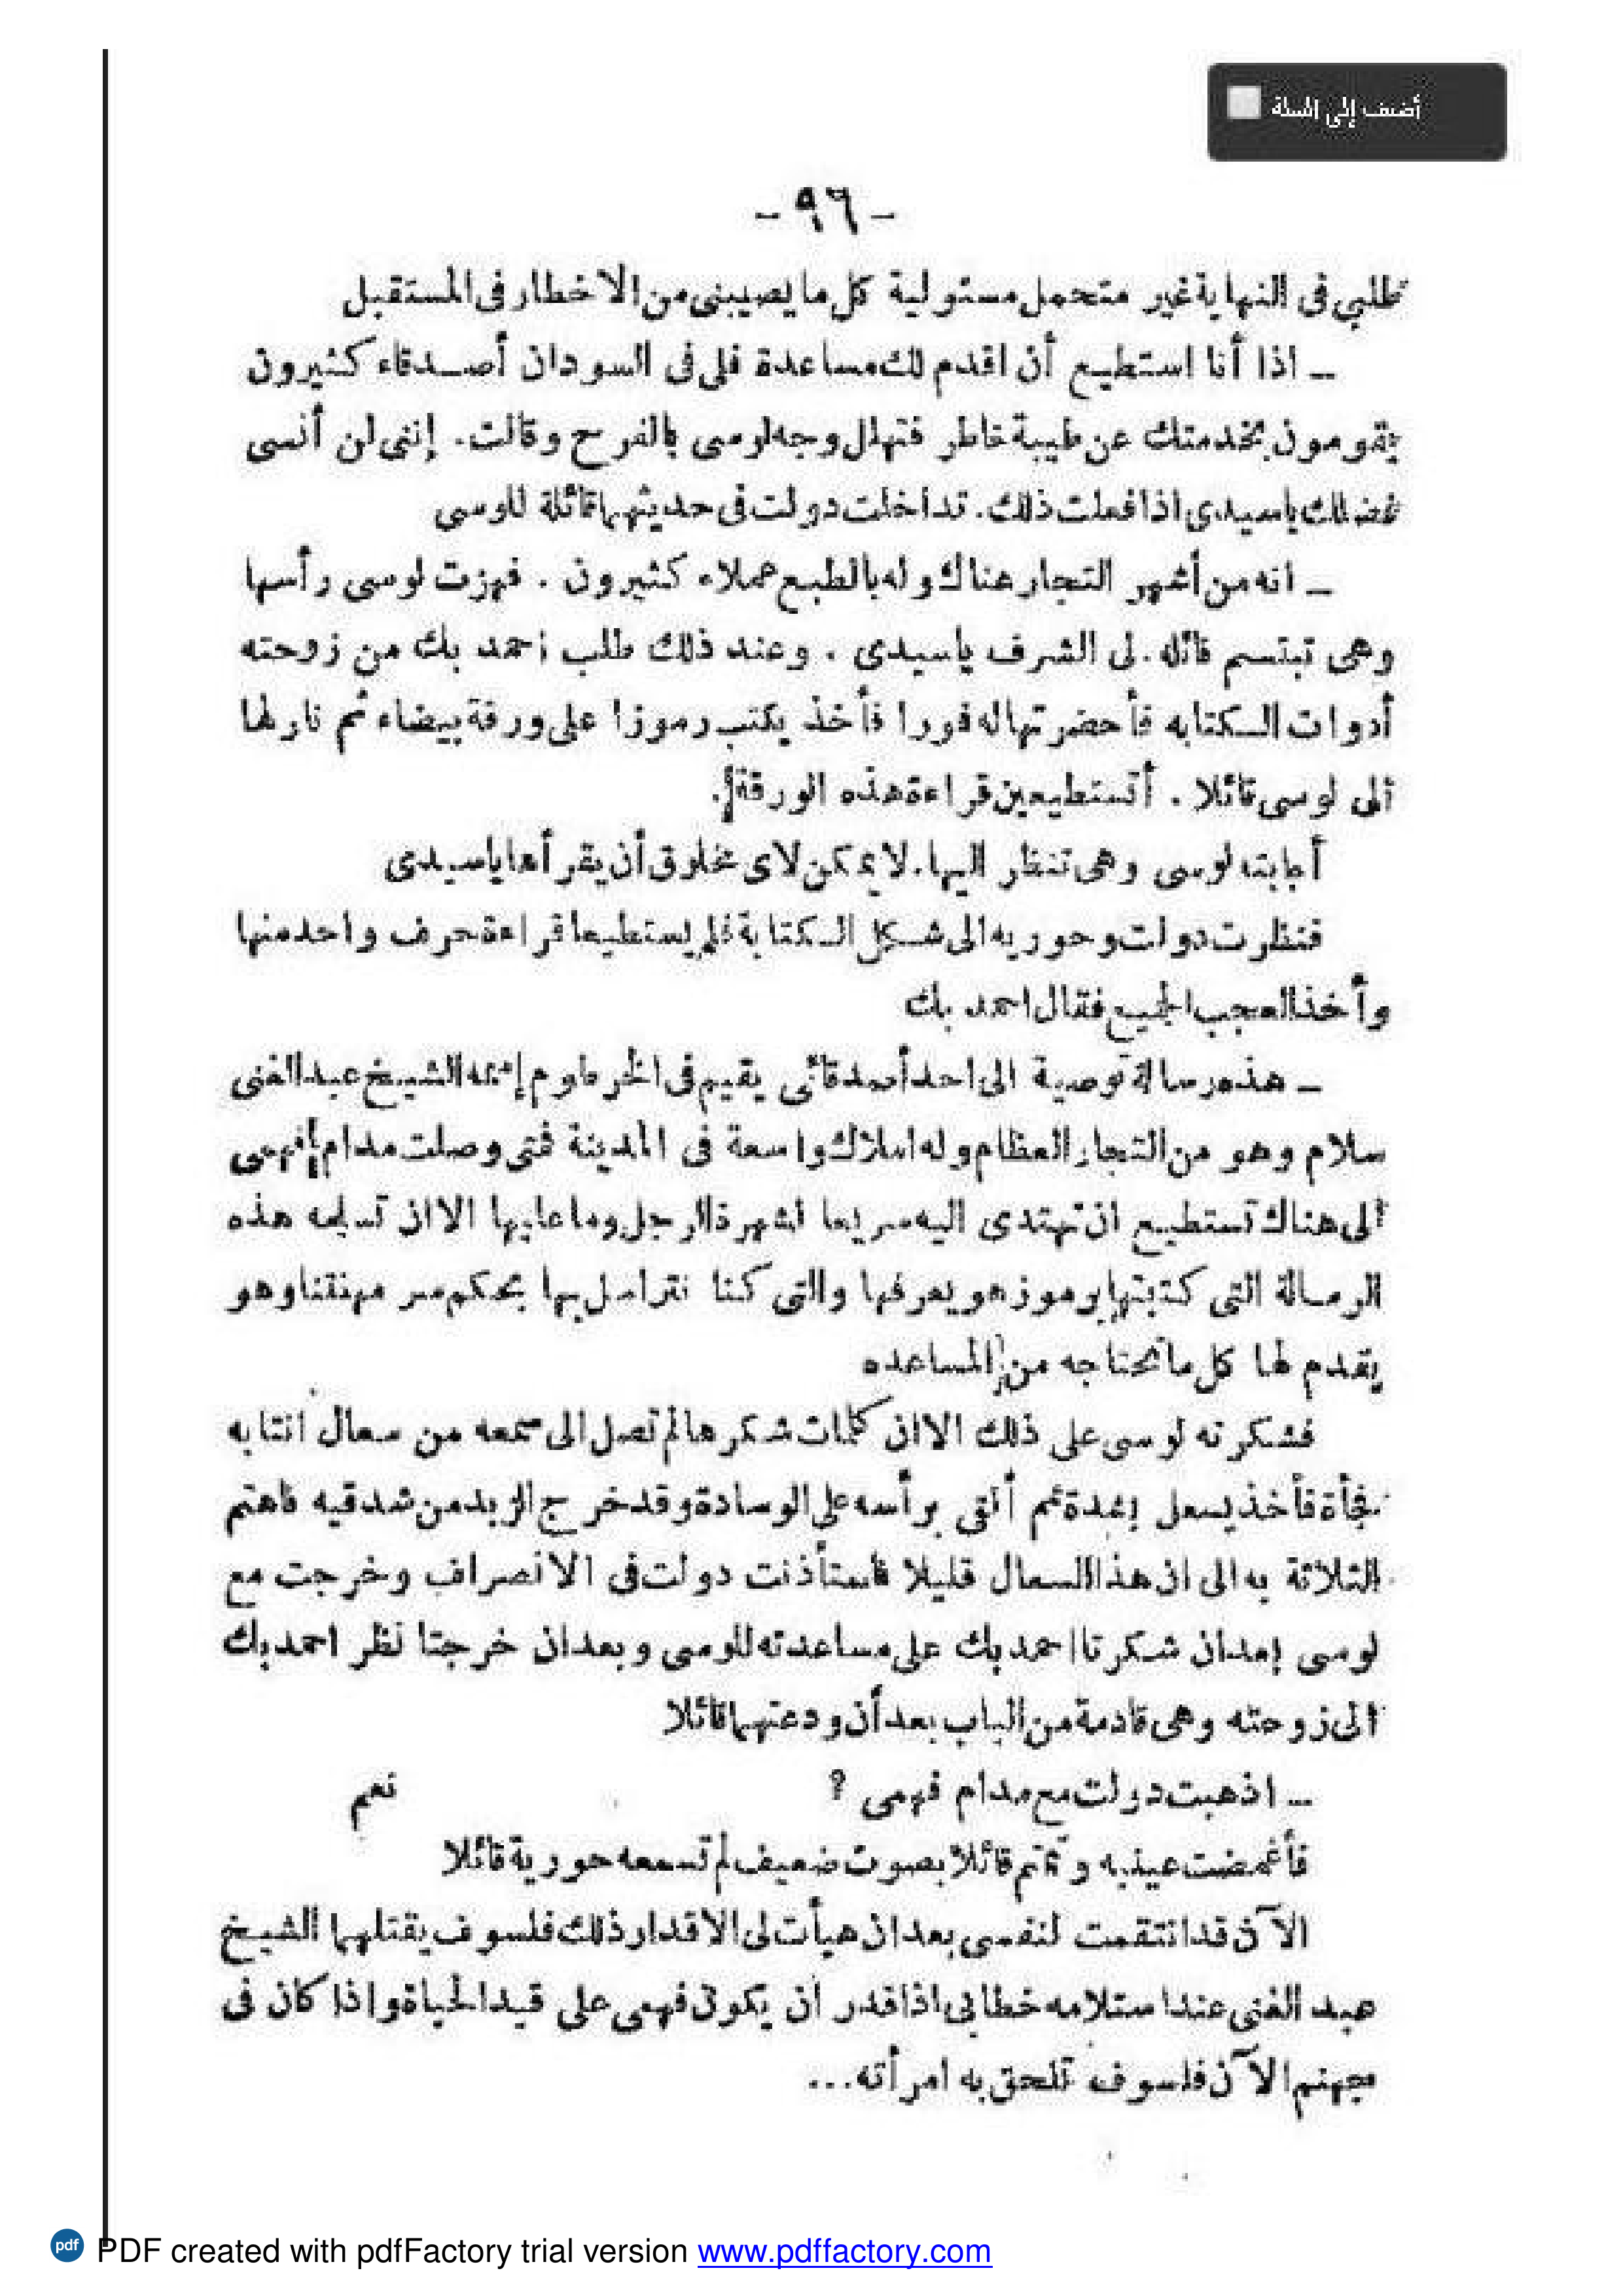 أضف إلى السلة
- ٩٦ -
طلبي فى النهاية غير متحمل مسئولية كل ما يصيبنى من الاخطار فى المستقبل
ــ اذا أنا استطيع أن اقدم لك مساعدة فلى فى السودان أصدقاء كثيرون
يقومون بخدمتك عن طيبة خاطر فتهلل وجه لوسى بالفرح وقالت. إننى لن أنسى
فضلك ياسيدى اذا فعلت ذلك. تداخلت دولت فى حديثهما قائلة للوسى
ــ انه من أشهر التجار هناك وله بالطبع عملاء كثيرون . فهزت لوسى رأسها
وهى تبتسم قائله . لى الشرف ياسيدى . وعند ذلك طلب احمد بك من زوجته
أدوات الكتابه فأحضرتها له فورا فأخذ يكتب رموزا على ورقة بيضاء ثم ناولها
الى لوسى قائلا . أتستطيعين قراءة هذه الورقة.
أجابته لوسى وهى تنظر اليها. لا يمكن لاى مخلوق أن يقرأها ياسيدى
فنظرت دولت وحوريه الى شكل الكتابة فلم يستطيعا قراءة حرف واحد منها
وأخذ العجب الجميع فقال احمد بك
ــ هذه رسالة توصية الى احد أصدقائى يقيم فى الخرطوم إسمه الشيخ عبد الغنى
سلام وهو من التجار العظام وله املاك واسعة فى المدينة فتى وصلت مدام فهمى
الى هناك تستطيع ان تهتدى اليه سريعا لشهرة الرجل وما عليها الا ان تسلمه هذه
الرسالة التى كتبتها برموز هو يعرفها والتى كنا نتراسل بها بحكم سر مهنتنا وهو
يقدم لها كل ما تحتاجه من المساعده
فشكرته لوسى على ذلك الا ان كلمات شكرها لم تصل الى سمعه من سعال انتابه
فجأة فأخذ يسعل بشدة ثم ألقى برأسه على الوسادة وقد خرج الزبد من شدقيه فاهتم
الثلاثة به الى ان هذا السعال قليلا فاستأذنت دولت فى الانصراف وخرجت مع
لوسى بعد ان شكرتا احمد بك على مساعدته للوسى وبعد ان خرجتا نظر احمد بك
الى زوجته وهى قادمة من الباب بعد أن ودعتهما قائلا
ــ اذهبت دولت مع مدام فهمى ؟ نعم
فأغمضت عينيه وتمتم قائلا بصوت ضعيف لم تسمعه حورية قائلا
الآن قد انتقمت لنفسى بعد ان هيأت لى الاقدار ذلك فلسوف يقتلها الشيخ
عبد الغنى عند استلامه خطابى اذا قدر ان يكون فهمى على قيد الحياة واذا كان فى
جهنم الآن فلسوف تلحق به امرأته...
pdf PDF created with pdfFactory trial version www.pdffactory.com